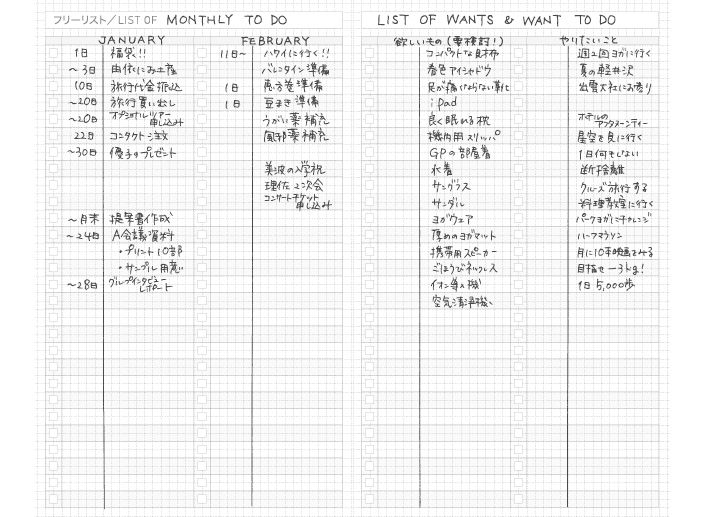 フリーリスト／LIST OF MONTHLY TO DO
JANUARY
1日 福袋!!
～3日 由依にお土産
10日 旅行代金振込
～20日 旅行買い出し
～20日 オプショナルツアー申し込み
22日 コンタクト注文
～30日 優子のプレゼント
～月末 提案書作成
～24日 A会議資料
・プリント10部
・サンプル用意
～28日 グループインタビューレポート
FEBRUARY
11日～ ハワイに行く!!
バレンタイン準備
1日 恵方巻準備
1日 豆まき準備
うがい薬補充
風邪薬補充
美波の入学祝
理佐2次会
コンサートチケット申し込み
LIST OF WANTS & WANT TO DO
欲しいもの(要検討!)
コンパクトなお財布
春色アイシャドウ
足が痛くならない革靴
ipad
良く眠れる枕
機内用スリッパ
GPの部屋着
水着
サングラス
サンダル
ヨガウェア
厚めのヨガマット
携帯用スピーカー
ごほうびネックレス
イオン導入機
空気清浄機
やりたいこと
週2回ヨガに行く
夏の軽井沢
出雲大社にお参り
ホテルのアフタヌーンティー
星空を見に行く
1日何もしない
断捨離
クルーズ旅行する
料理教室に行く
パークヨガにチャレンジ
ハーフマラソン
月に10本映画をみる
目指せ－3kg!
1日5,000歩